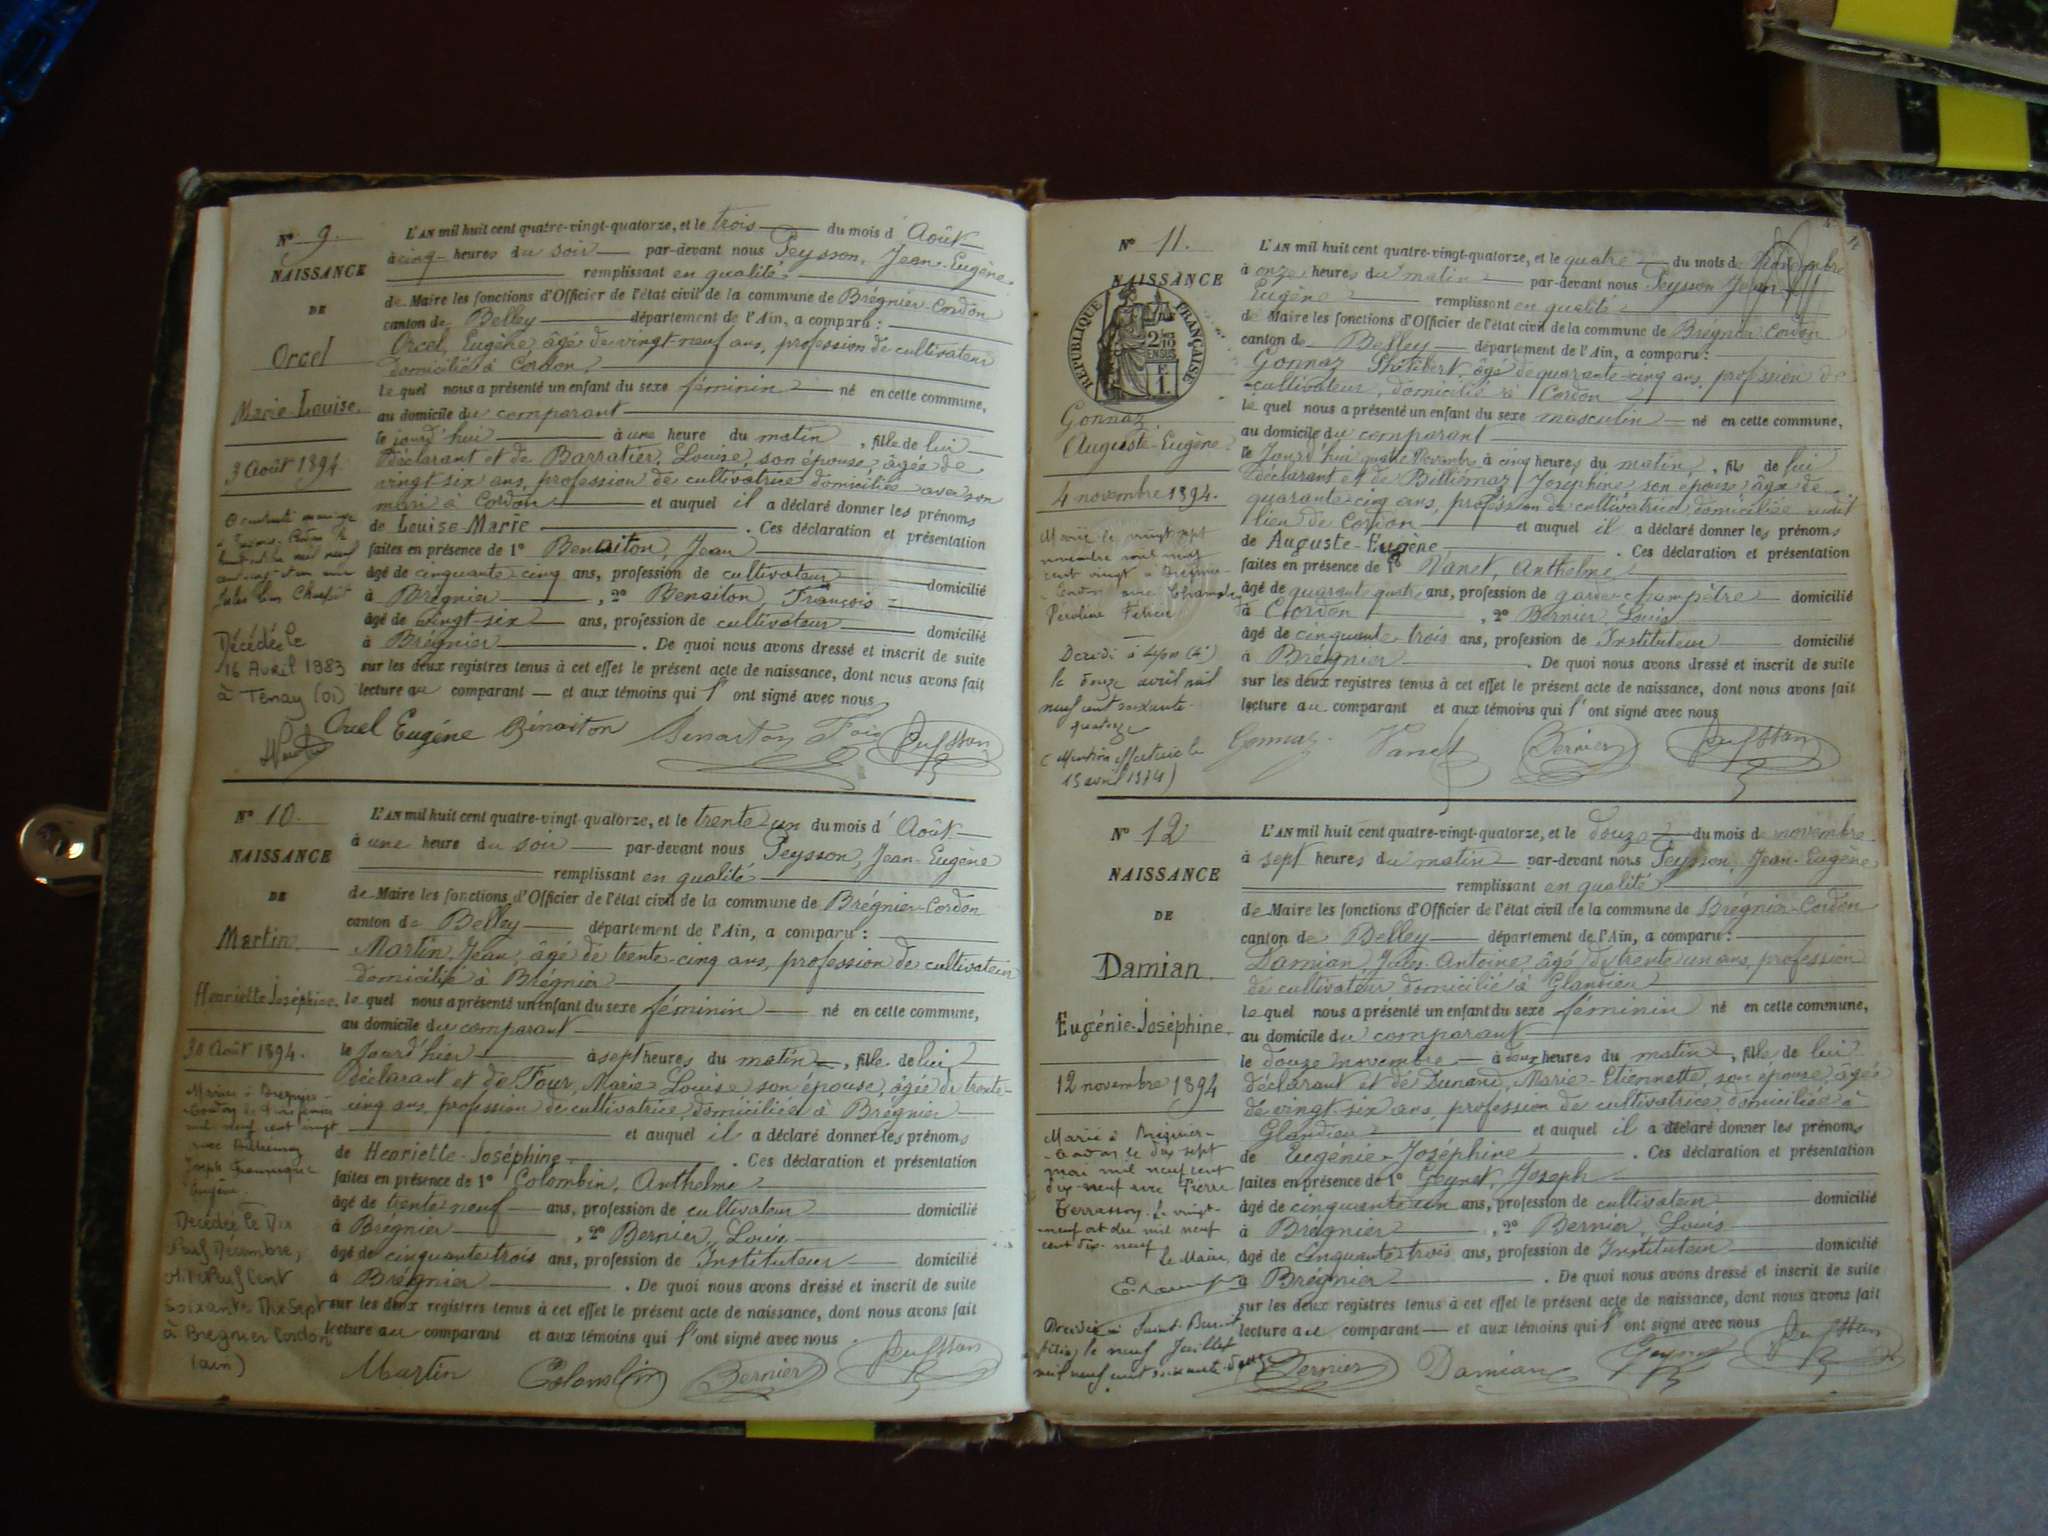 N° 9.
NAISSANCE
DE
Orcel
Marie-Louise
3 Août 1894
Décédée le
16 Avril 1983
à Tenay (01)
L'AN mil huit cent quatre-vingt-quatorze, et le trois du mois d'Août
à cinq heures du soir par-devant nous Peysson, Jean-Eugène
remplissant en qualité
de Maire les fonctions d'Officier de l'état civil de la commune de Brégnier-Cordon
canton de Belley département de l'Ain, a comparu :
Orcel, Eugène, âgé de vingt-neuf ans, profession de cultivateur
domicilié à Cordon
le quel nous a présenté un enfant du sexe féminin né en cette commune,
au domicile du comparant
le jourd'hui à une heure du matin, fille de lui
déclarant et de Barratier, Louise, son épouse, âgée de
vingt six ans, profession de cultivatrice domiciliée avec son
mari à Cordon et auquel il a déclaré donner les prénoms
de Louise-Marie . Ces déclaration et présentation
faites en présence de 1° Benaiton, Jean
âgé de cinquante cinq ans, profession de cultivateur domicilié
à Brégnier , 2° Benaiton François
âgé de vingt-six ans, profession de cultivateur domicilié
à Brégnier . De quoi nous avons dressé et inscrit de suite
sur les deux registres tenus à cet effet le présent acte de naissance, dont nous avons fait
lecture au comparant et aux témoins qui l'ont signé avec nous
Orcel Eugène Bénaiton Benaiton Peysson
N° 10.
NAISSANCE
DE
Martin
Henriette Joséphine.
30 Août 1894.
Décédée le Dix
Neuf Décembre,
Mil Neuf Cent
Soixante Dix Sept
à Brégnier Cordon
(ain)
L'AN mil huit cent quatre-vingt-quatorze, et le trente-un du mois d'Août
à une heure du soir par-devant nous Peysson, Jean-Eugène
remplissant en qualité
de Maire les fonctions d'Officier de l'état civil de la commune de Brégnier-Cordon
canton de Belley département de l'Ain, a comparu :
Martin, Jean, âgé de trente-cinq ans, profession de cultivateur
domicilié à Brégnier
le quel nous a présenté un enfant du sexe féminin né en cette commune,
au domicile du comparant
le Jourd'hier à sept heures du matin, fille de lui
déclarant et de Four, Marie Louise, son épouse, âgée de trente-
cinq ans, profession de cultivatrice, domiciliée à Brégnier
et auquel il a déclaré donner les prénoms
de Henriette-Joséphine . Ces déclaration et présentation
faites en présence de 1° Colombin, Anthelme
âgé de trente neuf ans, profession de cultivateur domicilié
à Brégnier , 2° Bernier, Louis
âgé de cinquante trois ans, profession de Instituteur domicilié
à Brégnier . De quoi nous avons dressé et inscrit de suite
sur les deux registres tenus à cet effet le présent acte de naissance, dont nous avons fait
lecture au comparant et aux témoins qui l'ont signé avec nous.
Martin Colombin Bernier Peysson
N° 11.
NAISSANCE
REPUBLIQUE FRANÇAISE
Gonnaz
Auguste-Eugène
4 novembre 1894.
Marié le vingt sept
novembre mil neuf
cent vingt à Brégnier
Cordon avec
Décédé à Lyon (4e)
le douze avril mil
neuf cent soixante-
quatorze
(Mention effectuée le
15 avril 1974)
L'AN mil huit cent quatre-vingt-quatorze, et le quatre du mois de Novembre
à onze heures du matin par-devant nous Peysson Jean
Eugène remplissant en qualité
de Maire les fonctions d'Officier de l'état civil de la commune de Brégnier-Cordon
canton de Belley département de l'Ain, a comparu :
Gonnaz Philibert, âgé de quarante-cinq ans, profession de
cultivateur, domicilié à Cordon
le quel nous a présenté un enfant du sexe masculin né en cette commune,
au domicile du comparant
le Jourd'hui quatre Novembre à cinq heures du matin, fils de lui
déclarant et de Billiemaz, Joséphine, son épouse, âgée de
quarante cinq ans, profession de cultivatrice domiciliée audit
lieu de Cordon et auquel il a déclaré donner les prénoms
de Auguste-Eugène . Ces déclaration et présentation
faites en présence de 1° Vanet, Anthelme
âgé de quarante quatre ans, profession de garde-champêtre domicilié
à Cordon , 2° Bernier Louis
âgé de cinquante trois ans, profession de Instituteur domicilié
à Brégnier . De quoi nous avons dressé et inscrit de suite
sur les deux registres tenus à cet effet le présent acte de naissance, dont nous avons fait
lecture au comparant et aux témoins qui l'ont signé avec nous
Gonnaz Vanet Bernier Peysson
N° 12
NAISSANCE
DE
Damian
Eugénie-Joséphine.
12 novembre 1894
Marié à Brégnier-
Cordon le dix sept
mai mil neuf cent
dix-neuf avec Pierre
Le Maire,
Décédée à Saint-Benoit
le neuf Juillet
mil neuf cent soixante-douze
L'AN mil huit cent quatre-vingt-quatorze, et le douze du mois de novembre
à sept heures du matin par-devant nous Peysson, Jean-Eugène
remplissant en qualité
de Maire les fonctions d'Officier de l'état civil de la commune de Brégnier-Cordon
canton de Belley département de l'Ain, a comparu :
Damian, Jules-Antoine âgé de trente un ans, profession
de cultivateur domicilié à Glandieu
le quel nous a présenté un enfant du sexe féminin né en cette commune,
au domicile du comparant
le douze novembre à deux heures du matin, fille de lui
déclarant et de Dunand, Marie-Etiennette, son épouse, âgée
de vingt-six ans, profession de cultivatrice domiciliée à
Glandieu et auquel il a déclaré donner les prénoms
de Eugénie-Joséphine . Ces déclaration et présentation
faites en présence de 1° Geynet, Joseph
âgé de cinquante un ans, profession de cultivateur domicilié
à Brégnier , 2° Bernier, Louis
âgé de cinquante trois ans, profession de Instituteur domicilié
à Brégnier . De quoi nous avons dressé et inscrit de suite
sur les deux registres tenus à cet effet le présent acte de naissance, dont nous avons fait
lecture au comparant et aux témoins qui l'ont signé avec nous
Bernier Damian Geynet Peysson